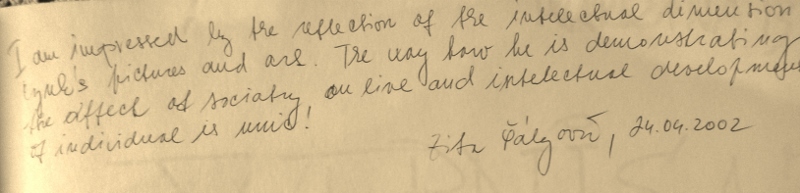 I am impressed by the reflection of the intelectual dimention
pictures and art. The way how he is demonstrating
the effect of sociatry on live and intelectual development
of individual is unic!
Zita 24.04.2002